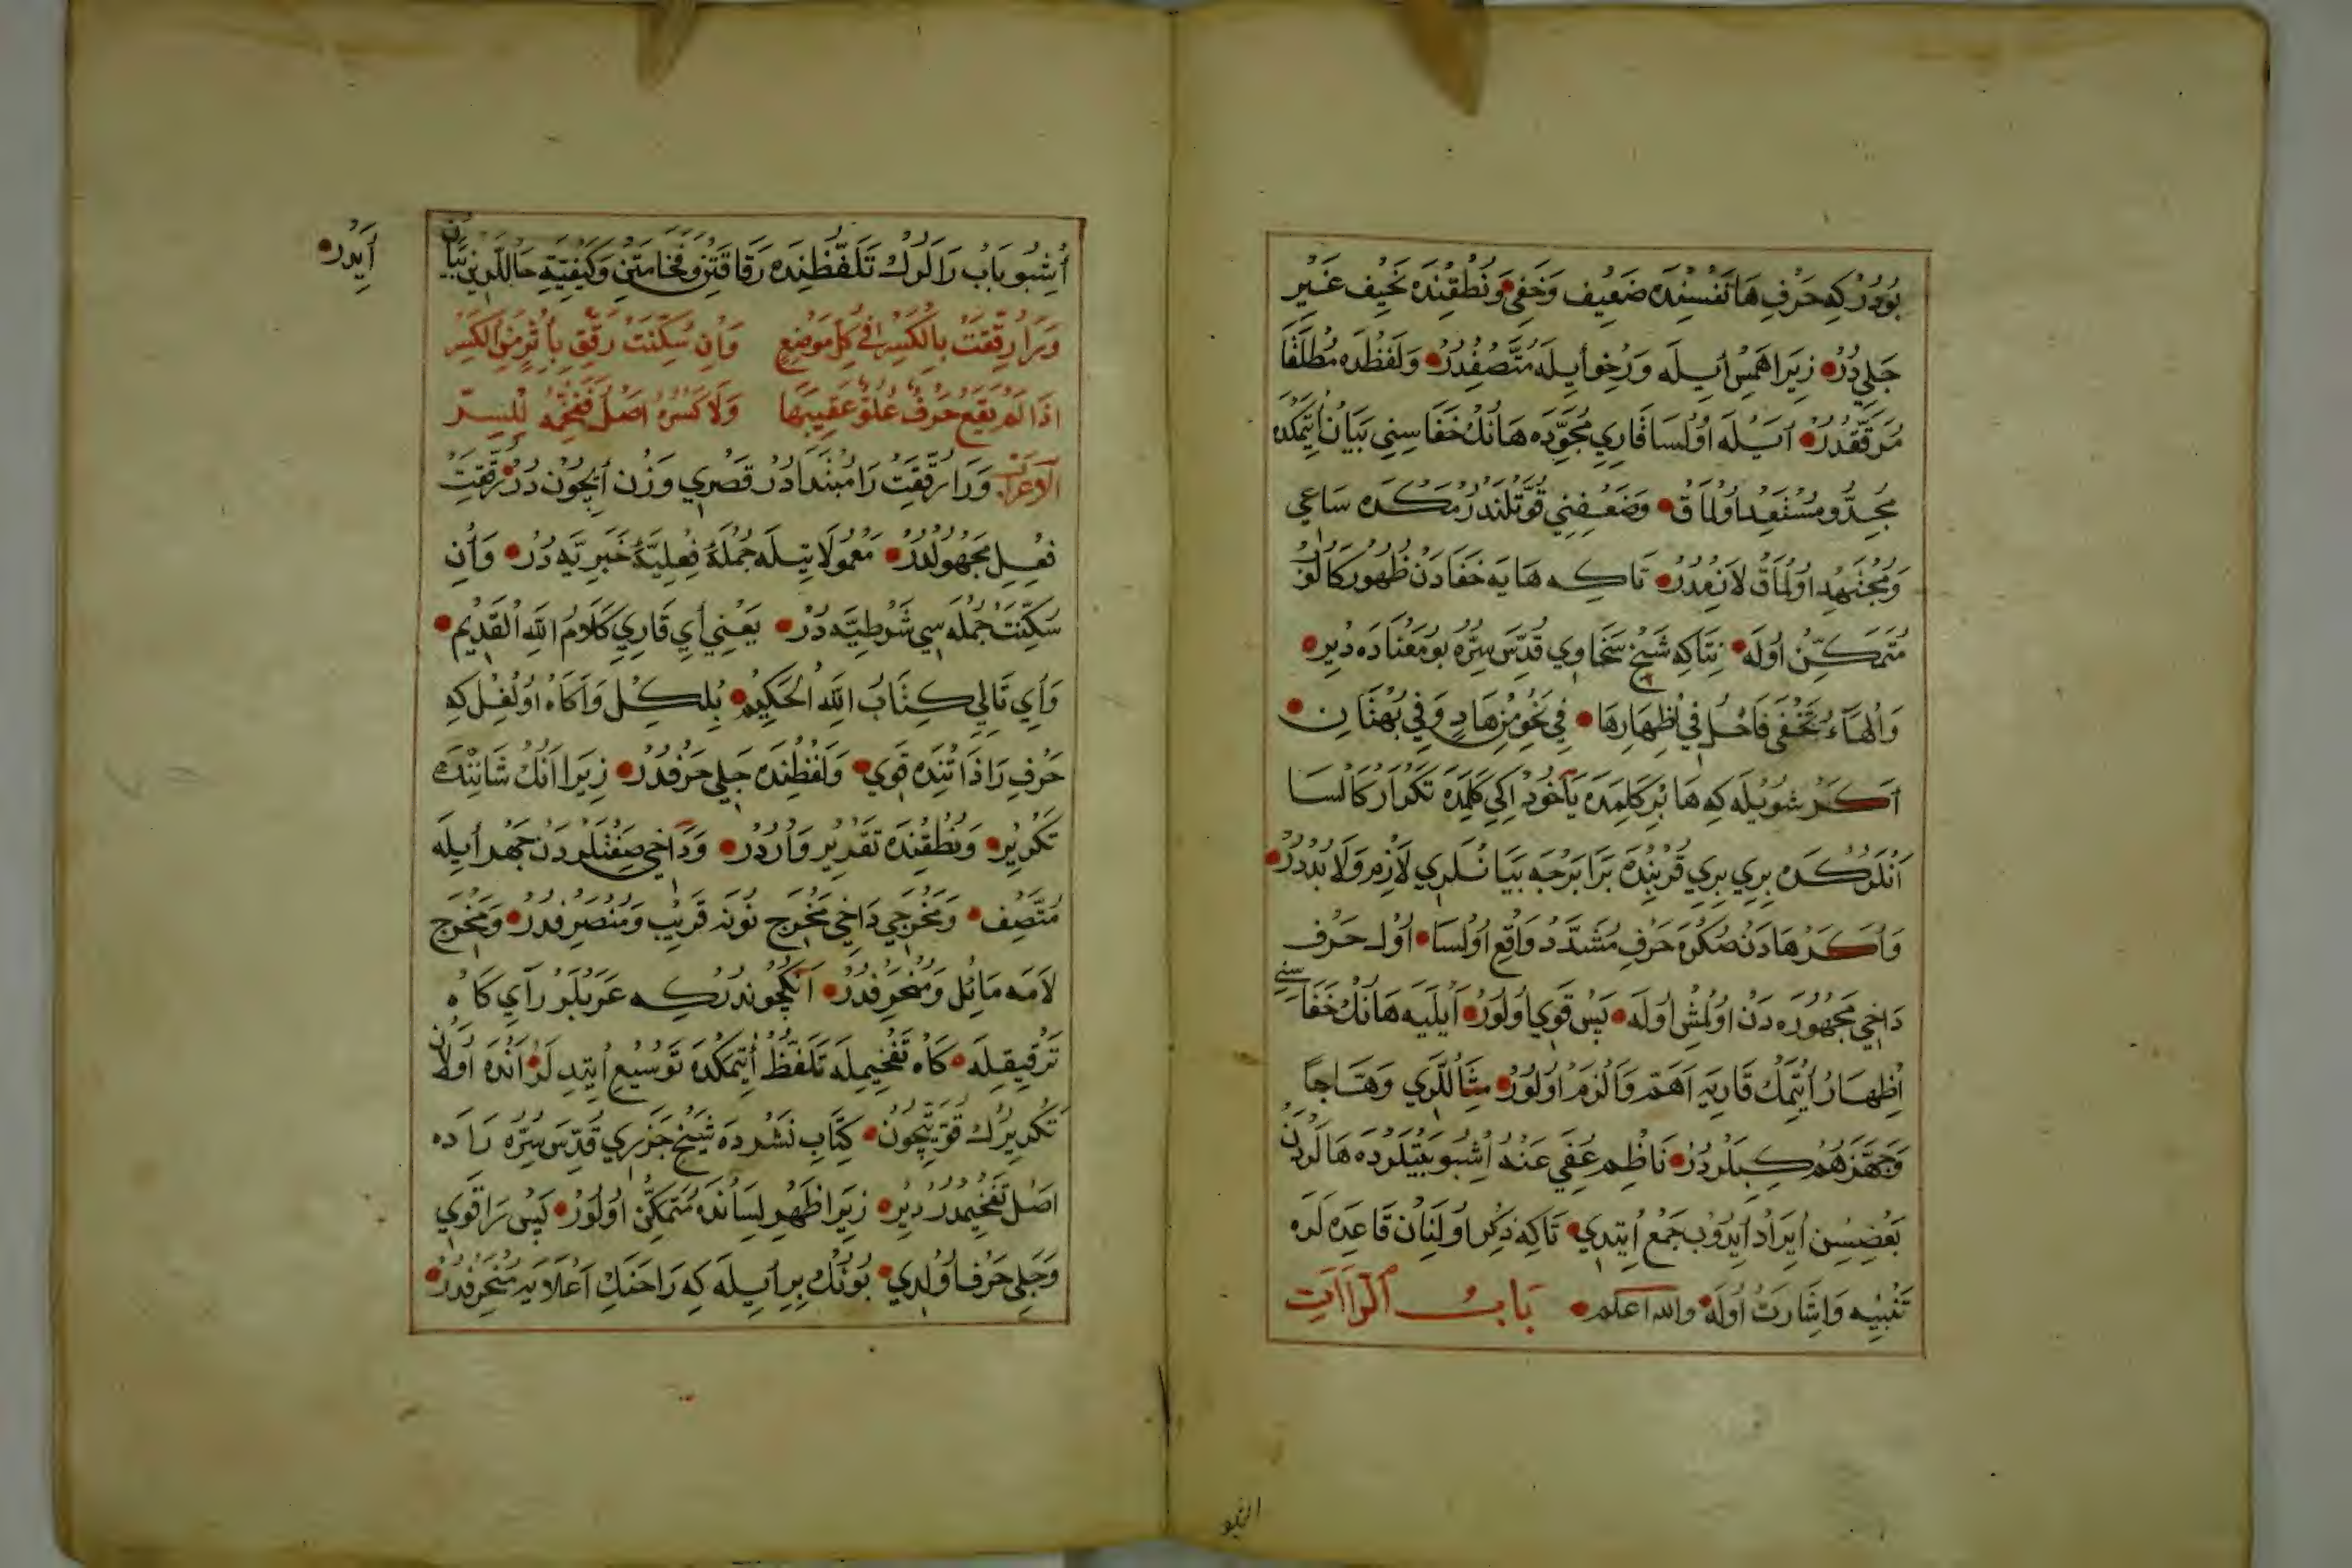 بُودُرْ كِه حَرْفِ هَا نَفْسِنْدَه ضَعِيف وَخَفِي وَنُطْقِنْدَه نَحِيف غَيْرِ
جَلِي دُرْ زِيرَا هَمْس اَيلَه وَرِخْو اَيلَه مُتَّصِفْدُرْ وَلَفْظْدَه مُطْلَقَا
مُرَقَّقْدُرْ اَيلَه اُولْسَا قَارِيِ مُجَوِّدَه هَانُكْ خَفَاسِنِي بَيَان اِتْمَكْدَه
مُجِدُّ و مُسْتَعِدْ اُولْمَاقْ وَضَعْفِنِي قُوَّتْلَنْدُرْمَكْدَه سَاعِي
وَمُجْتَهِدْ اُولْمَاقْ لَازِمْدُرْ تَاكِه هَايَه خَفَادَنْ ظُهُورْ كَالُوْرْ
مُتَمَكِّنْ اُولَه نِتَاكِه شَيْخ سَخَاوِي قُدِّسَ سِرُّه بُو مَعْنَادَه دِيرْ
وَالْهَاءُ تَخْفَى فَاحْلُ فِي اِظْهَارِهَا فِي نَحْوِ مِنْ هَادٍ وَفِي بُهْتَانِ
اَكَرْ شُويلَه كِه هَا بِرْ كَلِمَدَه يَاخُودْ اِكِي كَلِمَدَه تَكْرَارْ كَالْسَا
اَنْلَرُكْدَه بِرِي بِرِي قُرْبِنْدَه بَرَابَرْجَه بَيَانْلَرِي لَازِمْ وَلَابُدْدُرْ
وَاَكَرْ هَادَنْ صُكْرَه حَرْفِ مُشَدَّدْ وَاقِعْ اُولْسَا اُولْ حَرْف
دَاخِي مَجْهُورَه دَنْ اُولْمِشْ اُولَه پَسْ قَوِي اُولُورْ اَيلَيَه هَانُكْ خَفَاسِنِي
اِظْهَارْ اِتْمَكْ قَارِيَه اَهَمْ وَاَلْزَمْ اُولُورْ مِثَاللَّرِي وَهَّاجًا
وَجَهَّزَهُمْ كِبِلَرْدُرْ نَاظِم عُفِيَ عَنْه اُشْبُو بَيْتْلَرْدَه هَالَرْدَنْ
بَعْضِسِنْ اِيرَادْ اَيدُوبْ جَمْع اِيتِدِي تَاكِه ذِكْر اُولِنَانْ قَاعِدَه لَرَه
تَنْبِيه وَاِشَارَتْ اُولَه وَاللّه اَعْلَم بَابُ الرَّاآتِ
اُشْبُو بَابْ رَالَرُكْ تَلَفُّظِنْدَه رَقَاقَتِنْ وَفَخَامَتِنْ وَكَيْفِيَّةِ حَاللَّرِينْ بَيَان
اَيدَرْ
وَرَا رُقِّقَتْ بِالْكَسْرِ فِي كُلِّ مَوْضِعٍ وَاِنْ سُكِّنَتْ رَقِّقْ بِاِثْرٍ مِنَ الْكَسْرِ
اِذَا لَمْ يَقَعْ حَرْفُ عُلُوٍّ عَقِيبَهَا وَلَا كَسْرُهُ اَصْلٌ فَفَخِّمْهُ لِلْيُسْرِ
الْاِعْرَابْ وَرَا رُقِّقَتْ رَا مُبْتَدَا دُرْ قَصْرِي وَزْن اِيچُون دُرْ رُقِّقَتْ
فِعْلِ مَجْهُولْدُرْ مَعْمُولَاتِيلَه جُمْلَةُ فِعْلِيَّةُ خَبَرِيَّه دُرْ وَاِنْ
سُكِّنَتْ جُمْلَه سِي شَرْطِيَّه دُرْ يَعْنِي اَيْ قَارِيِ كَلَامُ اللّهِ الْقَدِيم
وَاَيْ تَالِي كِتَابُ اللّهِ الْحَكِيم بُلْكِلْ وَاَكَاهْ اُولْغِلْ كِه
حَرْفِ رَا ذَاتِنْدَه قَوِي وَلَفْظِنْدَه جَلِي حَرْفْدُرْ زِيرَا اَنُكْ شَانِنْدَه
تَكْرِيرْ وَنُطْقِنْدَه تَقْدِيرْ وَارْدُرْ وَدَاخِي صِفَتْلَرْدَنْ جَهْرْ اَيلَه
مُتَّصِف وَمَخْرَجِي دَاخِي مَخْرَجِ نُونَه قَرِيبْ وَمُنْصَرِفْدُرْ وَمَخْرَجِ
لَامَه مَائِلْ وَمُنْحَرِفْدُرْ اَنِكْچُونْدُرْكِه عَرَبْلَرْ رَايِ كَاهْ
تَرْقِيقِلَه كَاهْ تَفْخِيمِلَه تَلَفُّظْ اِتْمَكْدَه تَوْسِيعْ اِيتِدِيلَرْ اَنْدَه اُولَانْ
تَكْرِيرُكْ قُوَّتِيچُونْ كِتَابِ نَشْرْدَه شَيْخ جَزَرِي قُدِّسَ سِرُّه رَادَه
اَصْلْ تَفْخِيمْدُرْ دِيرْ زِيرَا ظَهْرِ لِسَانْدَه مُتَمَكِّنْ اُولُورْ پَسْ رَا قَوِي
وَجَلِي حَرْف اُولْدِي بُونُكْ بِرْاَيلَه كِه رَا حَنَكِ اَعْلَايَه مُنْحَرِفْدُرْ